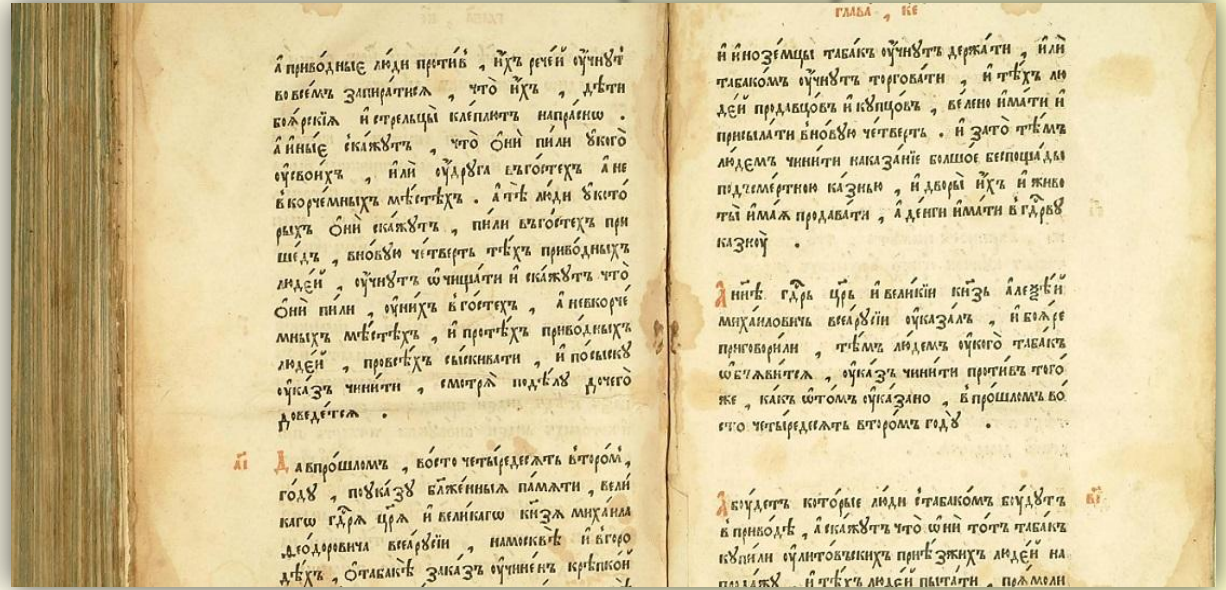 а҆ приво́дные лю́ди проти́в , и҆́хъ рече́й ᲂу҆чнꙋ́т
во все́мъ запира́тися , что̀ и҆́хъ , дѣ́ти
боя́рскїѧ и҆ стрельцы̀ кле́плютъ напра́снѡ .
а҆ и҆ны́е ска́жꙋтъ , что̀ ѻ҆нѝ пи́ли ᲂу҆ кого̀
ᲂу҆ свои́хъ , и҆лѝ ᲂу҆ дрꙋ́га въ го́стех а҆ не
в корче́мныхъ мѣ́стѣхъ . а҆ тѣ̀ лю́ди ᲂу҆ кото́
рыхъ ѻ҆нѝ ска́жꙋтъ , пи́ли въ го́стех при
ше́дъ , в но́вꙋю че́тверть тѣ́хъ приво́дныхъ
люде́й , ᲂу҆чнꙋ́тъ ѡ҆чища́ти и҆ ска́жꙋтъ что̀
ѻ҆нѝ пи́ли , ᲂу҆ ни́хъ в го́стех , а҆ не в корче́
мныхъ мѣ́стѣхъ , и҆ про тѣ́хъ приво́дныхъ
люде́й , про всѣ́хъ сы́скивати , и҆ по сы́скꙋ
ᲂу҆ка́зъ чини́ти , смотрѧ̀ по дѣ́лꙋ до чего̀
доведе́тсѧ .
а҃і Да в про́шломъ , во сто четы́редесѧть второ́м ,
годꙋ̀ , по ᲂу҆ка́зꙋ бл҃же́нныѧ па́мѧти , вели́
кагѡ гд҃рѧ цр҃ѧ̀ и҆ вели́кагѡ кн҃зѧ михаи́ла
ѳео́доровича всеѧ̀ рꙋсі́и , на москвѣ̀ и҆ в горо
дѣ́хъ , ѻ҆ табакѣ̀ зака́зъ ᲂу҆чине́нъ крѣ́пкой
глава̀ , к҃е
и҆ и҆нозе́мцы таба́къ ᲂу҆чнꙋ́тъ держа́ти , и҆лѝ
табако́мъ ᲂу҆чнꙋ́тъ торгова́ти , и҆ тѣ́хъ лю
де́й продавцо́въ и҆ кꙋпцо́въ , ве́лено и҆ма́ти и҆
присыла́ти в но́вꙋю че́тверть . и҆ за то̀ тѣ́мъ
лю́демъ чини́ти наказа́нїе болшо́е без поща́ды
под сме́ртною ка́знью , и҆ дворы̀ и҆́хъ и҆ живо
ты̀ и҆ма́ѧ продава́ти , а҆ де́нги и҆ма́ти в гд҃рвꙋ
казнꙋ̀ .
А҆ ны́нѣ гд҃рь цр҃ь и҆ вели́кїи кн҃зь а҆леѯѣ́й
миха́иловичь всеѧ̀ рꙋсі́и ᲂу҆каза́лъ , и҆ боѧ́ре
приговори́ли , тѣ́мъ лю́демъ ᲂу҆ кого̀ таба́къ
ѡ҆б̾ѧ́витсѧ , ᲂу҆ка́зъ чини́ти про́тивъ того̀
же , ка́къ ѡ҆ то́мъ ᲂу҆ка́зано , в про́шломъ во
сто четы́редесѧть второ́мъ годꙋ̀ .
А҆ бꙋ́детъ кото́рые лю́ди с табако́мъ бꙋ́дꙋтъ в҃і
в приво́дѣ , а҆ ска́жꙋтъ что̀ ѡ҆нѝ то́тъ таба́къ
кꙋпи́ли ᲂу҆ лито́въскихъ прїѣ́зжихъ люде́й на
прода́жꙋ , и҆ тѣ́хъ люде́й пыта́ти , прѧ́мо ли